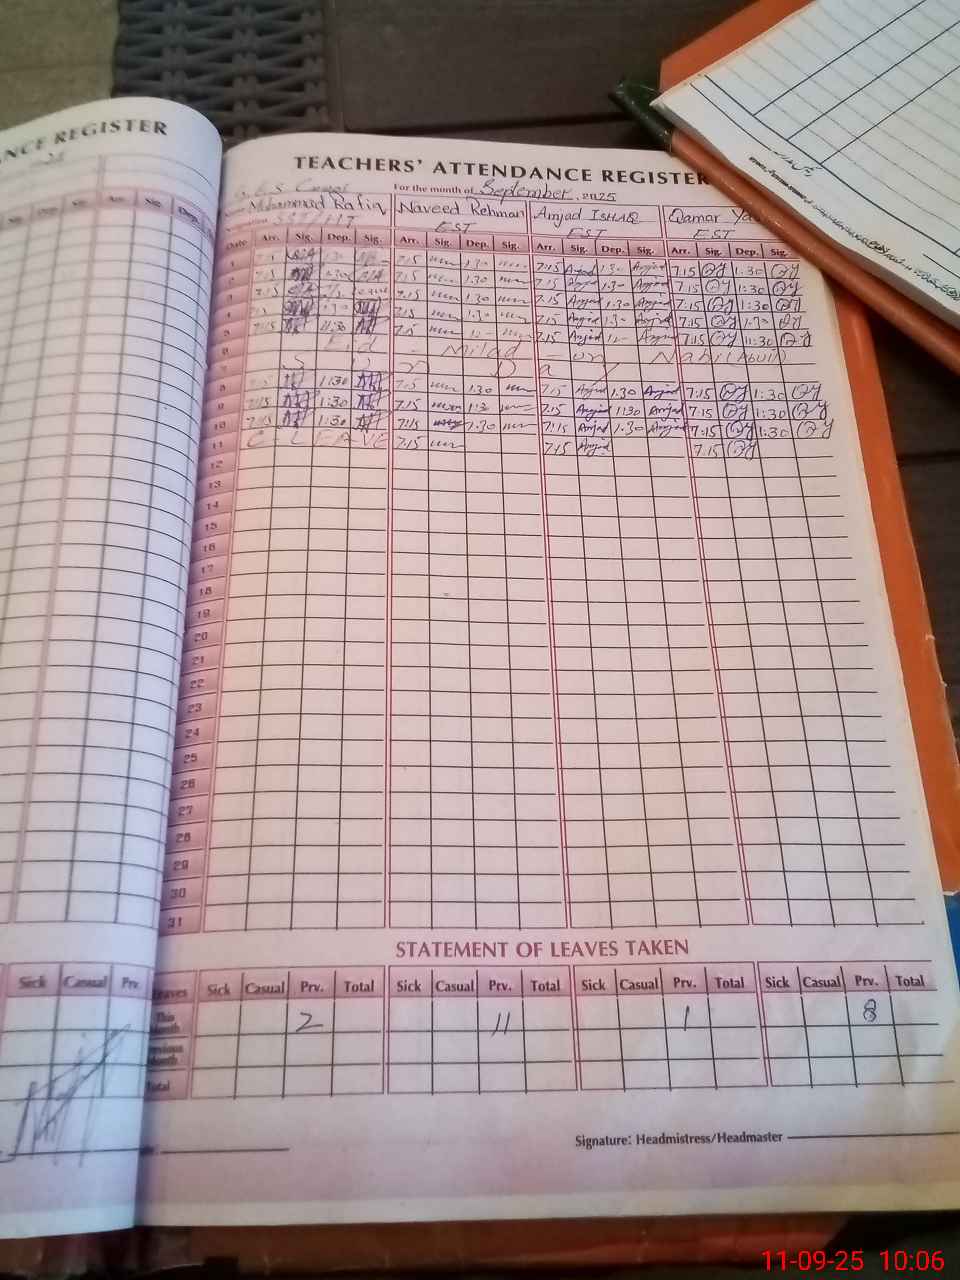 NCE REGISTER
TEACHERS' ATTENDANCE REGISTER
For the month of September, 2025
Muhammad Rafiq Naveed Rehman Amjad ISHAQ Qamar
SST/ EST EST EST
Date Arr. Sig. Dep. Sig. Arr. Sig. Dep. Sig. Arr. Sig. Dep. Sig. Arr. Sig. Dep. Sig.
1 7:15 7:15 1:30 7:15 Amjad 1:30 Amjad 7:15 QY 1:30 QY
2 7:15 7:15 1:30 7:15 Amjad 1:30 Amjad 7:15 QY 1:30 QY
3 7:15 7:15 1:30 7:15 Amjad 1:30 Amjad 7:15 QY 1:30 QY
4 7:15 1:30 7:15 1:30 7:15 Amjad 1:30 Amjad 7:15 QY 1:30 QY
5 7:15 11:30 7:15 7:15 Amjad Amjad 7:15 QY 11:30 QY
6 Eid - Milad - un Nabi
7 S U n D a y
8 7:15 1:30 7:15 1:30 7:15 Amjad 1:30 Amjad 7:15 QY 1:30 QY
9 7:15 1:30 7:15 1:30 7:15 Amjad 1:30 Amjad 7:15 QY 1:30 QY
10 7:15 1:30 7:15 1:30 7:15 Amjad 1:30 Amjad 7:15 QY 1:30 QY
11 C - LEAVE 7:15 7:15 Amjad 7:15 QY
12
13
14
15
16
17
18
19
20
21
22
23
24
25
26
27
28
29
30
31
STATEMENT OF LEAVES TAKEN
Sick Casual Prv. Leaves Sick Casual Prv. Total Sick Casual Prv. Total Sick Casual Prv. Total Sick Casual Prv. Total
This Month 2 11 1 8
Previous Month
Total
Signature: Headmistress/Headmaster
11-09-25 10:06